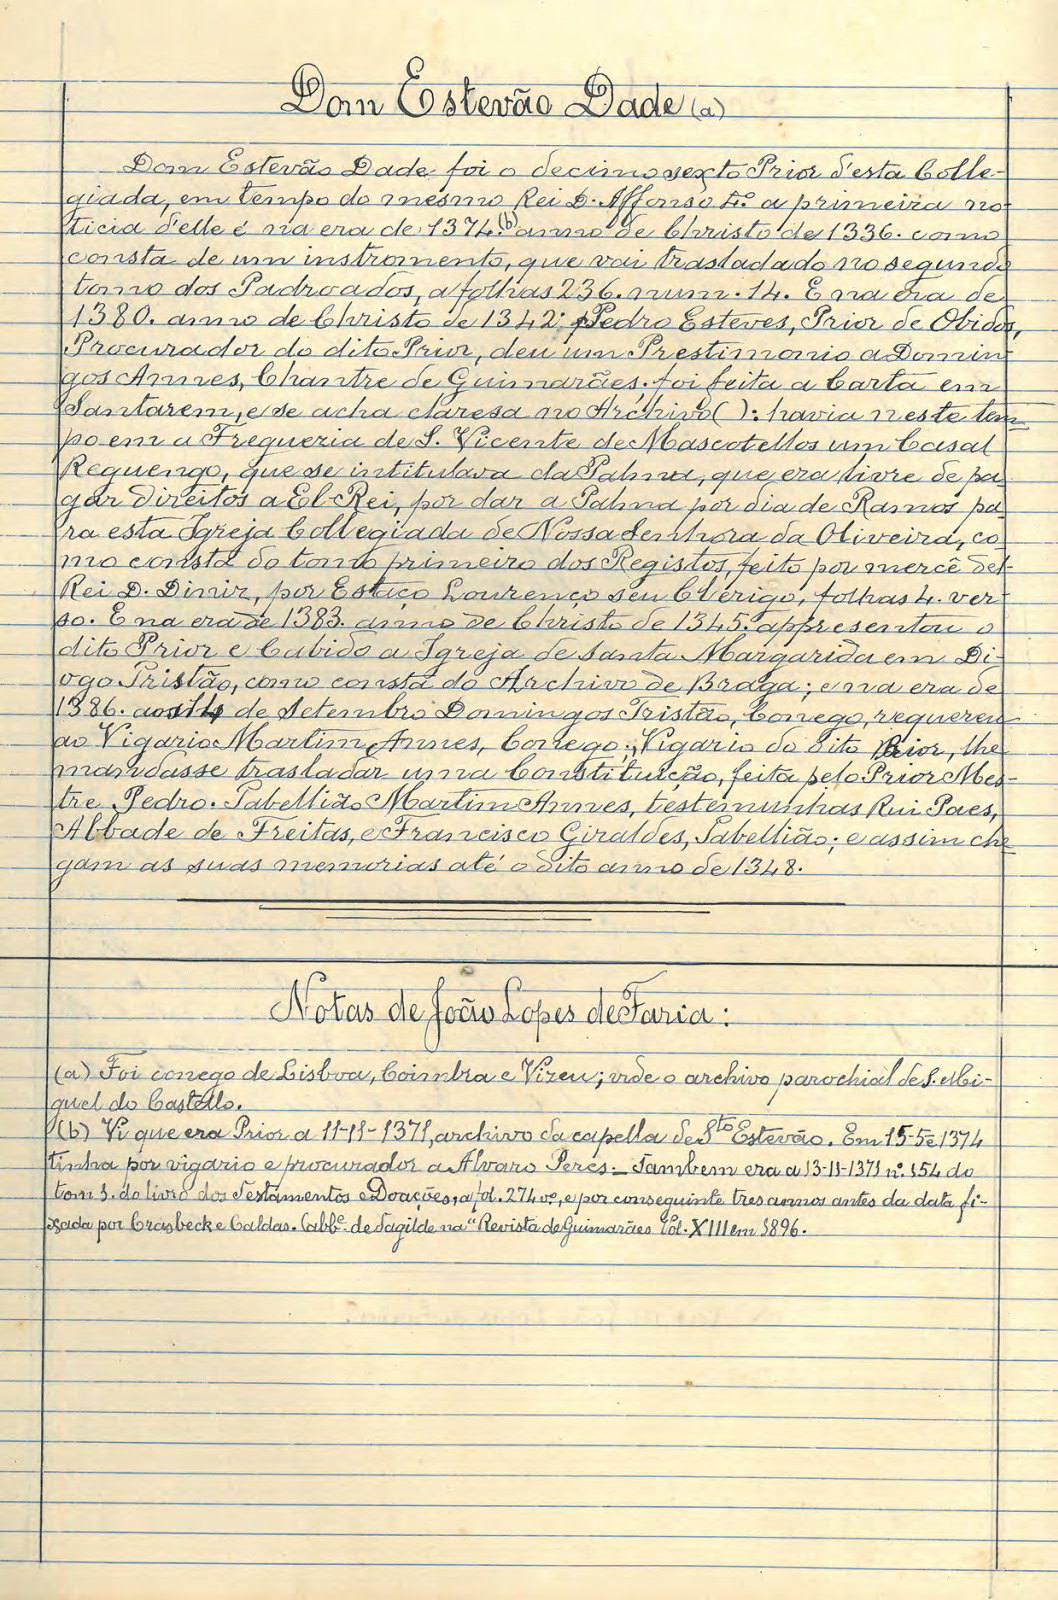 Dom Estevão Dade (a)
Dom Estevão Dade foi o decimo sexto Prior d'esta Colle-
giada, em tempo do mesmo Rei D. Affonso 4.º a primeira no-
ticia d'elle é na era de 1374.(b) anno de Christo de 1336. como
consta de um instromento, que vai trasladado no segundo
tomo dos Padroados, a folhas 236. num. 14. E na era de
1380. anno de Christo de 1342: Pedro Esteves, Prior de Obidos,
Procurador do dito Prior, deu um Prestimonio a Domin-
gos Annes, Chantre de Guimarães; foi feita a Carta em
Santarem, e se acha claresa no Archivo ( ): havia neste tem-
po em a Freguezia de S. Vicente de Mascotellos um Casal
Reguengo, que se intitulava da Palma, que era livre de pa-
gar Direitos a El-Rei, por dar a Palma por dia de Ramos pa-
ra esta Igreja Collegiada de Nossa Senhora da Oliveira, co-
mo consta do tomo primeiro dos Registos, feito por mercê del-
Rei D. Diniz, por Estaço Lourenço seu Clerigo, folhas 4. ver-
so. E na era de 1383. anno de Christo de 1345. appresentou o
dito Prior e Cabido a Igreja de Santa Margarida em Di-
ogo Tristão, como consta do Archivo de Braga; e na era de
1386. aos 14 de Setembro Domingos Tristão, Conego, requereu
ao Vigario Martim Annes, Conego, Vigario do dito Prior, lhe
mandasse trasladar uma Constituição, feita pelo Prior Mes-
tre Pedro. Tabellião Martim Annes, testemunhas Rui Paes,
Abbade de Freitas, e Francisco Giraldes, Tabellião; e assim che-
gam as suas memorias até o dito anno de 1348.
Notas de João Lopes de Faria:
(a) Foi conego de Lisboa, Coimbra e Vizeu; vide o archivo parochial de S. Mi-
guel do Castello.
(b) Vi que era Prior a 11-11-1371, archivo da capella de S.to Estevão. Em 15-5-1374
tinha por vigario e procurador a Alvaro Peres. – Tambem era a 13-11-1371 n.º 154 do
tom 1. do livro dos Testamentos e Doações, a fol. 274 vº, e por conseguinte tres annos antes da data fi-
xada por Crasbeck e Caldas. (abb.e de Tagilde na "Revista de Guimarães Vol. XIII em 1896.